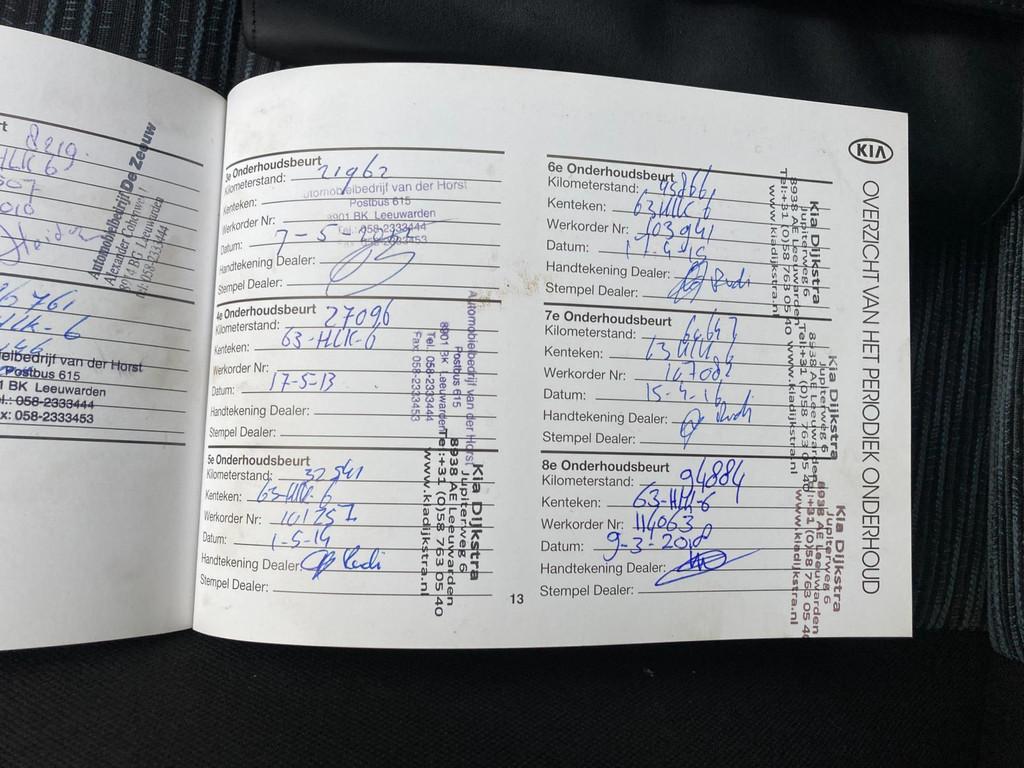 8219
HLK 6
Automobielbedrijf De Zeeuw
Alexander Cohenwei 1
8914 BE Leeuwarden
tel: 058-2333444
HLK-6
elbedrijf van der Horst
Postbus 615
1 BK Leeuwarden
l.: 058-2333444
x: 058-2333453
3e Onderhoudsbeurt
Kilometerstand: 21962
Kenteken:
Werkorder Nr:
Datum: 7-5
Handtekening Dealer:
Stempel Dealer:
utomobielbedrijf van der Horst
Postbus 615
8901 BK Leeuwarden
Tel.: 058-2333444
4e Onderhoudsbeurt
Kilometerstand: 27096
Kenteken: 63-HLK-6
Werkorder Nr:
Datum: 17-5-13
Handtekening Dealer:
Stempel Dealer:
Automobielbedrijf van der Horst
Postbus 615
8901 BK Leeuwarden
Tel. 058-2333444
Fax: 058-2333453
5e Onderhoudsbeurt
Kilometerstand: 32541
Kenteken: 63-HLK-6
Werkorder Nr: 101257
Datum: 1-5-14
Handtekening Dealer: Rudi
Stempel Dealer:
Kia Dijkstra
Jupiterweg 6
8938 AE Leeuwarden
Tel:+31 (0)58 763 05 40
www.kiadijkstra.nl
13
6e Onderhoudsbeurt
Kilometerstand:
Kenteken: 63HLK-6
Werkorder Nr: 103941
Datum: 17-4-15
Handtekening Dealer: Rudi
Stempel Dealer:
Kia Dijkstra
Jupiterweg 6
8938 AE Leeuwarden
Tel:+31 (0)58 763 05 40
www.kiadijkstra.nl
7e Onderhoudsbeurt
Kilometerstand:
Kenteken: 63HLK6
Werkorder Nr:
Datum: 15-4-16
Handtekening Dealer: Rudi
Stempel Dealer:
Kia Dijkstra
Jupiterweg 6
8938 AE Leeuwarden
Tel:+31 (0)58 763 05 40
www.kiadijkstra.nl
8e Onderhoudsbeurt
Kilometerstand: 94884
Kenteken: 63-HLK-6
Werkorder Nr: 114063
Datum: 9-3-2018
Handtekening Dealer:
Stempel Dealer:
Kia Dijkstra
Jupiterweg 6
8938 AE Leeuwarden
Tel:+31 (0)58 763 05 40
www.kiadijkstra.nl
KIA
OVERZICHT VAN HET PERIODIEK ONDERHOUD